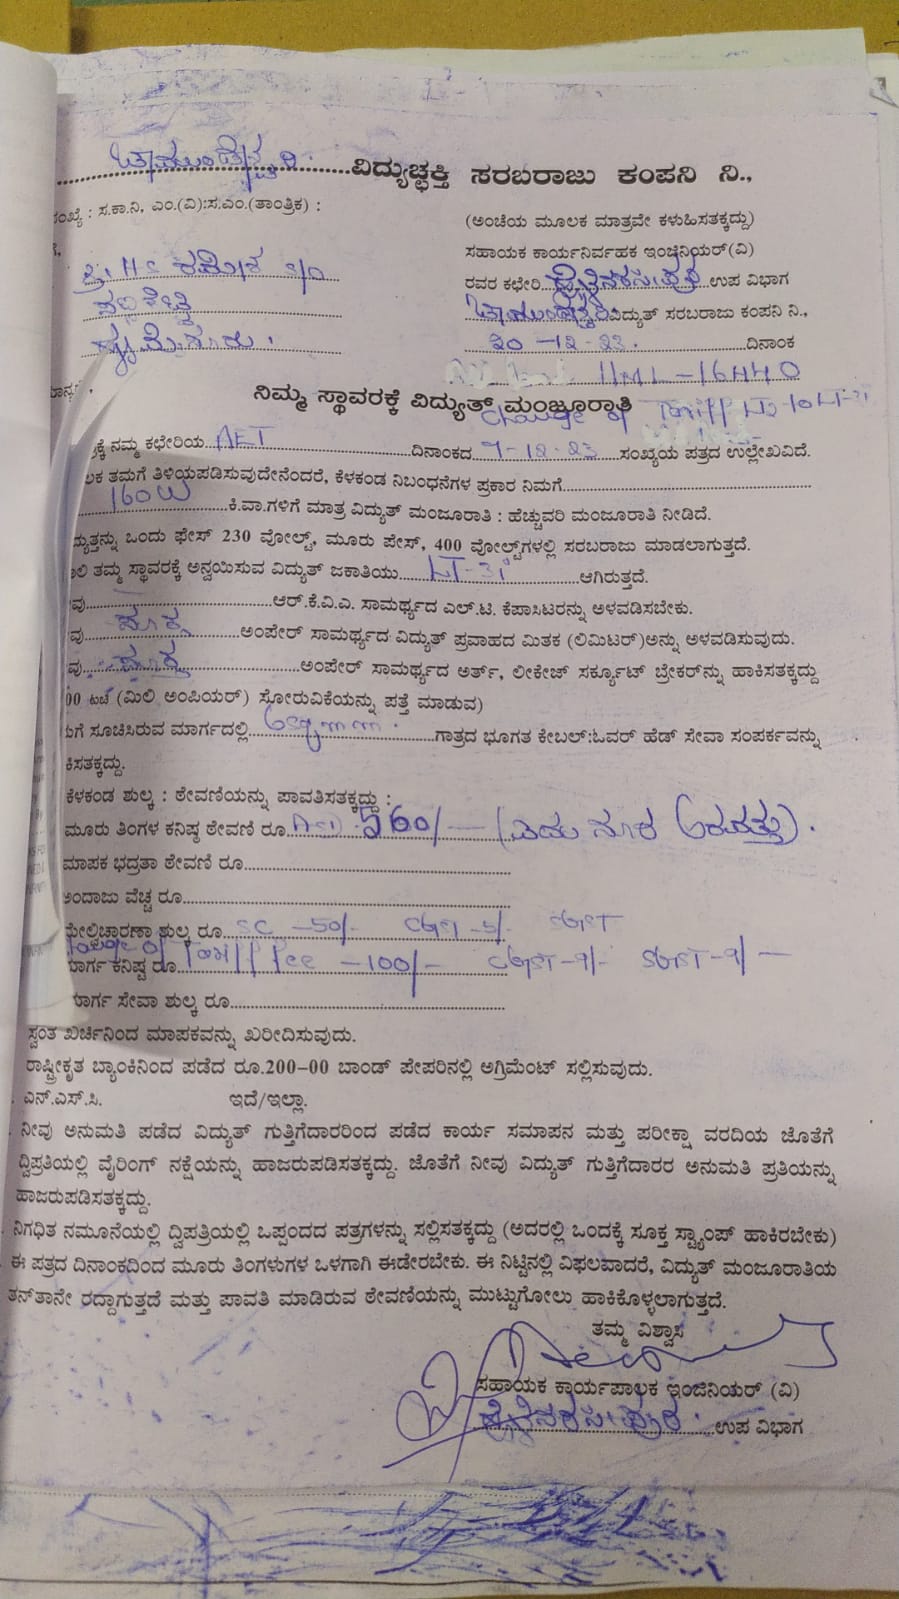 ಚಾಮುಂಡೇಶ್ವರಿ ವಿದ್ಯುಚ್ಛಕ್ತಿ ಸರಬರಾಜು ಕಂಪನಿ ನಿ.,
ಸಂಖ್ಯೆ : ಸ.ಕಾ.ನಿ, ಎಂ.(ವಿ):ಸ.ಎಂ.(ತಾಂತ್ರಿಕ) :
(ಅಂಚೆಯ ಮೂಲಕ ಮಾತ್ರವೇ ಕಳುಹಿಸತಕ್ಕದ್ದು)
ಸಹಾಯಕ ಕಾರ್ಯನಿರ್ವಾಹಕ ಇಂಜಿನಿಯರ್(ವಿ)
ರವರ ಕಛೇರಿ ಉಪ ವಿಭಾಗ
ಚಾಮುಂಡೇಶ್ವರಿ ವಿದ್ಯುತ್ ಸರಬರಾಜು ಕಂಪನಿ ನಿ.,
20-12-23. ದಿನಾಂಕ
11ML-16440
ನಿಮ್ಮ ಸ್ಥಾವರಕ್ಕೆ ವಿದ್ಯುತ್ ಮಂಜೂರಾತಿ
Change of Tariff
ನಮ್ಮ ಕಛೇರಿಯ AET ದಿನಾಂಕದ 7-12-23 ಸಂಖ್ಯೆಯ ಪತ್ರದ ಉಲ್ಲೇಖವಿದೆ.
ತಮಗೆ ತಿಳಿಯಪಡಿಸುವುದೇನೆಂದರೆ, ಕೆಳಕಂಡ ನಿಬಂಧನೆಗಳ ಪ್ರಕಾರ ನಿಮಗೆ
160W ಕಿ.ವಾ.ಗಳಿಗೆ ಮಾತ್ರ ವಿದ್ಯುತ್ ಮಂಜೂರಾತಿ : ಹೆಚ್ಚುವರಿ ಮಂಜೂರಾತಿ ನೀಡಿದೆ.
ಒಂದು ಫೇಸ್ 230 ವೋಲ್ಟ್, ಮೂರು ಪೇಸ್, 400 ವೋಲ್ಟ್‌ಗಳಲ್ಲಿ ಸರಬರಾಜು ಮಾಡಲಾಗುತ್ತದೆ.
ತಮ್ಮ ಸ್ಥಾವರಕ್ಕೆ ಅನ್ವಯಿಸುವ ವಿದ್ಯುತ್ ಜಕಾತಿಯು LT-3i ಆಗಿರುತ್ತದೆ.
ಆರ್.ಕೆ.ವಿ.ಎ. ಸಾಮರ್ಥ್ಯದ ಎಲ್.ಟಿ. ಕೆಪಾಸಿಟರನ್ನು ಅಳವಡಿಸಬೇಕು.
ಸೂಕ್ತ ಅಂಪೇರ್ ಸಾಮರ್ಥ್ಯದ ವಿದ್ಯುತ್ ಪ್ರವಾಹದ ಮಿತಕ (ಲಿಮಿಟರ್)ಅನ್ನು ಅಳವಡಿಸುವುದು.
ಸೂಕ್ತ ಅಂಪೇರ್ ಸಾಮರ್ಥ್ಯದ ಅರ್ತ್, ಲೀಕೇಜ್ ಸರ್ಕ್ಯೂಟ್ ಬ್ರೇಕರ್‌ನ್ನು ಹಾಕಿಸತಕ್ಕದ್ದು
(ಮಿಲಿ ಅಂಪಿಯರ್) ಸೋರುವಿಕೆಯನ್ನು ಪತ್ತೆ ಮಾಡುವ)
ಸೂಚಿಸಿರುವ ಮಾರ್ಗದಲ್ಲಿ ಗಾತ್ರದ ಭೂಗತ ಕೇಬಲ್:ಓವರ್ ಹೆಡ್ ಸೇವಾ ಸಂಪರ್ಕವನ್ನು
ಕಿಸತಕ್ಕದ್ದು.
ಕೆಳಕಂಡ ಶುಲ್ಕ : ಠೇವಣಿಯನ್ನು ಪಾವತಿಸತಕ್ಕದ್ದು :
ಮೂರು ತಿಂಗಳ ಕನಿಷ್ಠ ಠೇವಣಿ ರೂ 560/- (ಐದು ನೂರ ಅರವತ್ತು).
ಮಾಪಕ ಭದ್ರತಾ ಠೇವಣಿ ರೂ
ಅಂದಾಜು ವೆಚ್ಚ ರೂ
ಮೇಲ್ವಿಚಾರಣಾ ಶುಲ್ಕ ರೂ SC -50/- CGST-5/- SGST
Tariff Fee -100/- CGST-9/- SGST-9/-
ಮಾರ್ಗ ಕನಿಷ್ಠ ರೂ
ಮಾರ್ಗ ಸೇವಾ ಶುಲ್ಕ ರೂ
ಸ್ವಂತ ಖರ್ಚಿನಿಂದ ಮಾಪಕವನ್ನು ಖರೀದಿಸುವುದು.
ರಾಷ್ಟ್ರೀಕೃತ ಬ್ಯಾಂಕಿನಿಂದ ಪಡೆದ ರೂ.200-00 ಬಾಂಡ್ ಪೇಪರಿನಲ್ಲಿ ಅಗ್ರಿಮೆಂಟ್ ಸಲ್ಲಿಸುವುದು.
ಎನ್.ಎಸ್.ಸಿ. ಇದೆ/ಇಲ್ಲಾ.
ನೀವು ಅನುಮತಿ ಪಡೆದ ವಿದ್ಯುತ್ ಗುತ್ತಿಗೆದಾರರಿಂದ ಪಡೆದ ಕಾರ್ಯ ಸಮಾಪನ ಮತ್ತು ಪರೀಕ್ಷಾ ವರದಿಯ ಜೊತೆಗೆ
ದ್ವಿಪ್ರತಿಯಲ್ಲಿ ವೈರಿಂಗ್ ನಕ್ಷೆಯನ್ನು ಹಾಜರುಪಡಿಸತಕ್ಕದ್ದು. ಜೊತೆಗೆ ನೀವು ವಿದ್ಯುತ್ ಗುತ್ತಿಗೆದಾರರ ಅನುಮತಿ ಪ್ರತಿಯನ್ನು
ಹಾಜರುಪಡಿಸತಕ್ಕದ್ದು.
ನಿಗಧಿತ ನಮೂನೆಯಲ್ಲಿ ದ್ವಿಪತ್ರಿಯಲ್ಲಿ ಒಪ್ಪಂದದ ಪತ್ರಗಳನ್ನು ಸಲ್ಲಿಸತಕ್ಕದ್ದು (ಅದರಲ್ಲಿ ಒಂದಕ್ಕೆ ಸೂಕ್ತ ಸ್ಟ್ಯಾಂಪ್ ಹಾಕಿರಬೇಕು)
ಈ ಪತ್ರದ ದಿನಾಂಕದಿಂದ ಮೂರು ತಿಂಗಳುಗಳ ಒಳಗಾಗಿ ಈಡೇರಬೇಕು. ಈ ನಿಟ್ಟಿನಲ್ಲಿ ವಿಫಲವಾದರೆ, ವಿದ್ಯುತ್ ಮಂಜೂರಾತಿಯ
ತನ್‌ತಾನೇ ರದ್ದಾಗುತ್ತದೆ ಮತ್ತು ಪಾವತಿ ಮಾಡಿರುವ ಠೇವಣಿಯನ್ನು ಮುಟ್ಟುಗೋಲು ಹಾಕಿಕೊಳ್ಳಲಾಗುತ್ತದೆ.
ತಮ್ಮ ವಿಶ್ವಾಸಿ
ಸಹಾಯಕ ಕಾರ್ಯಪಾಲಕ ಇಂಜಿನಿಯರ್ (ವಿ)
ಉಪ ವಿಭಾಗ